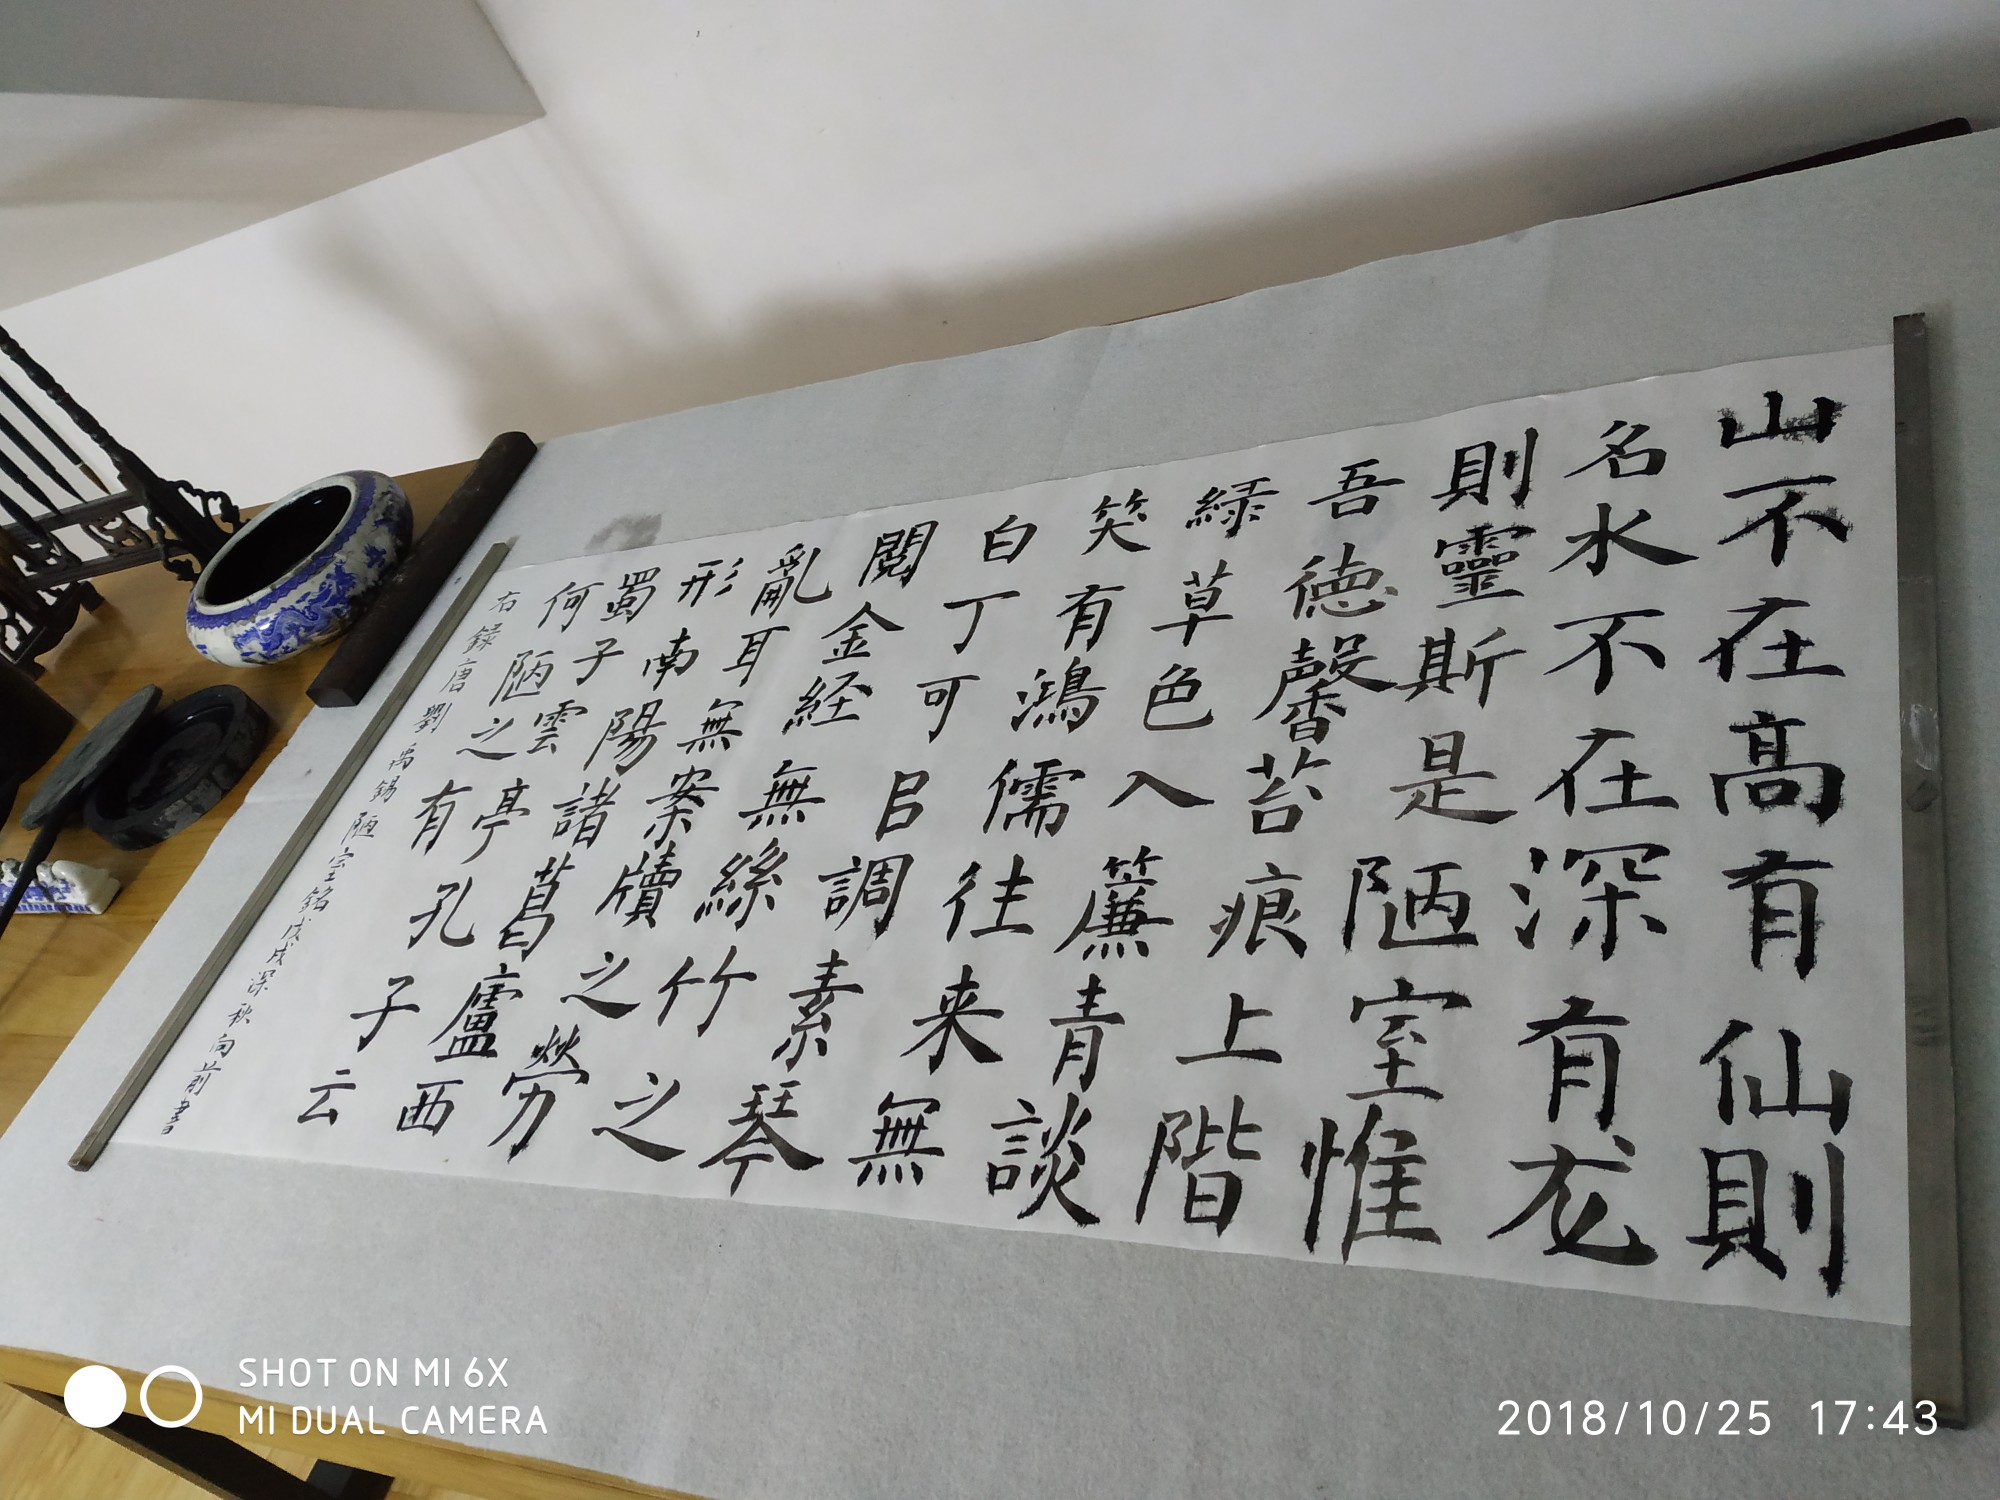 山不在高有仙則
名水不在深有龙
則靈斯是陋室惟
吾德馨苔痕上階
緑草色入簾青談
笑有鴻儒往来無
白丁可㠯調素琴
閱金経無絲竹之
亂耳無案牘之勞
形南陽諸葛盧西
蜀子雲亭孔子云
何陋之有
右録唐劉禹錫陋室銘戊戌深秋向前書
SHOT ON MI 6X
MI DUAL CAMERA
2018/10/25 17:43